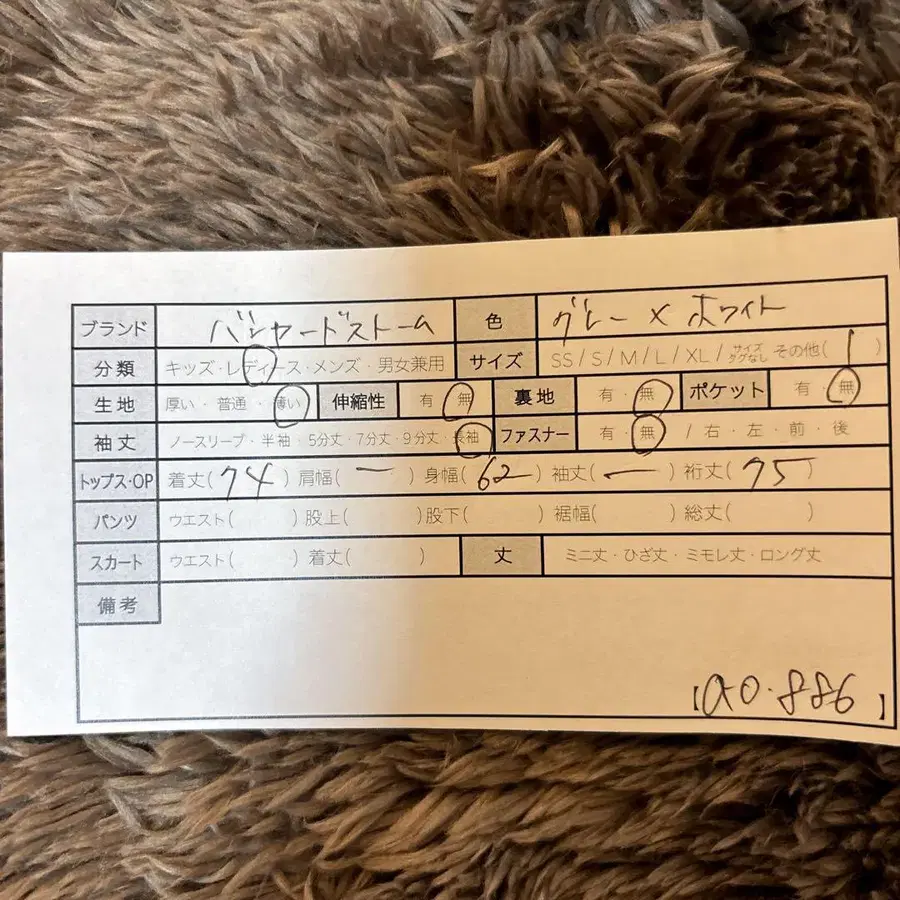 ブランド バンヤードストーム 色 グレー×ホワイト
分類 キッズ・レディース・メンズ・男女兼用 サイズ SS/S/M/L/XL/サイズタグなし その他(1)
生地 厚い・普通・薄い 伸縮性 有・無 裏地 有・無 ポケット 有・無
袖丈 ノースリーブ・半袖・5分丈・7分丈・9分丈・長袖 ファスナー 有・無 /右・左・前・後
トップス・OP 着丈(74) 肩幅(ー) 身幅(62) 袖丈(ー) 裄丈(75)
パンツ ウエスト( ) 股上( ) 股下( ) 裾幅( ) 総丈( )
スカート ウエスト( ) 着丈( ) 丈 ミニ丈・ひざ丈・ミモレ丈・ロング丈
備考
【a0.886】